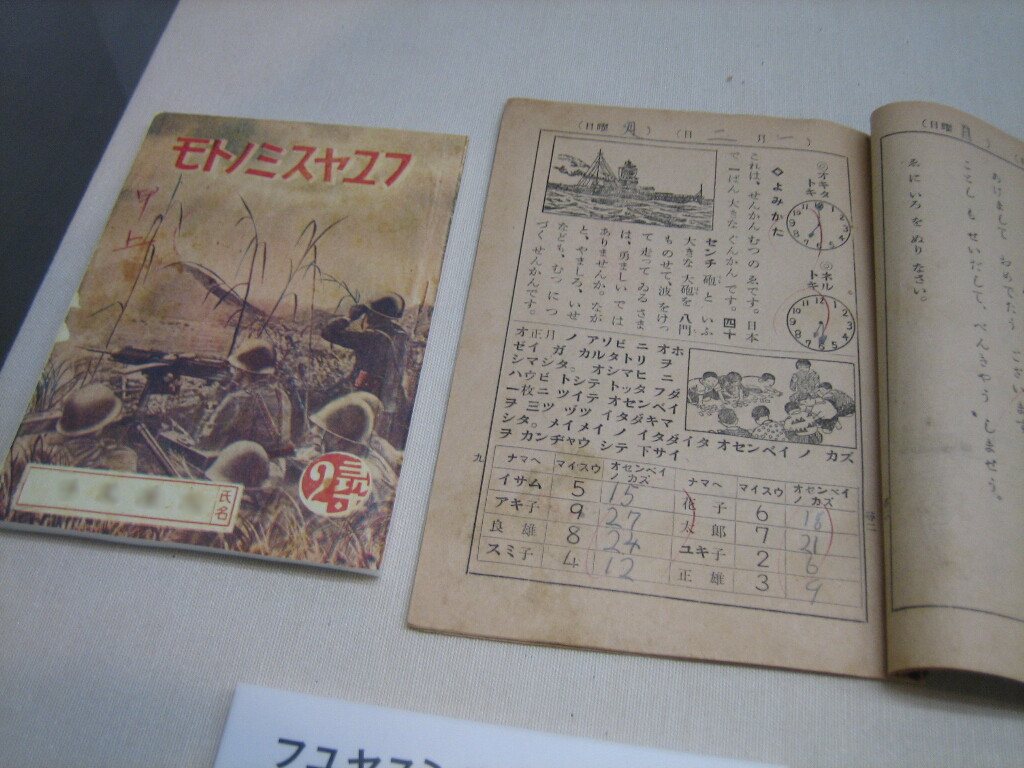 モトノミスヤユフ
甲
上
2
氏名
(日曜 月 ) (日 一 月 一 )
㋑オキタトキ
㋺ネルトキ
◇よみかた
これは、せんかんむつのゑです。日本
で一ばん大きなぐんかんです。四十
センチ砲といふ
大きな大砲を八門
ものせて、波をけっ
て走ってゐるさま
は、勇ましいでは
ありませんか。なが
と、やましろ、いせ
なども、むつにつ
づくせんかんです。
オ正月 ノ アソビ ニ オホ
ゼイ ガ カルタトリ ヲ
シマシタ。オシマヒ ニ
ハウビ トシテ トッタ フダ
一枚ニ ツイテ オセンベイ
ヲ 三ツ ヅツ イタダキマ
シタ。メイメイ ノ イタダイタ オセンベイ ノ カズ
ヲ カンヂャウ シテ ドサイ
ナマヘ マイスウ オセンベイノカズ ナマヘ マイスウ オセンベイノカズ
イサム 5 15 花子 6 18
アキ子 9 27 太郎 7 21
良雄 8 24 ユキ子 2 6
スミ子 4 12 正雄 3 9
九
(日曜 月 )
あけまして おめでたう ございます
ことしも せいだして、べんきゃう しませう。
ゑに いろを ぬりなさい。
フユヤスミ